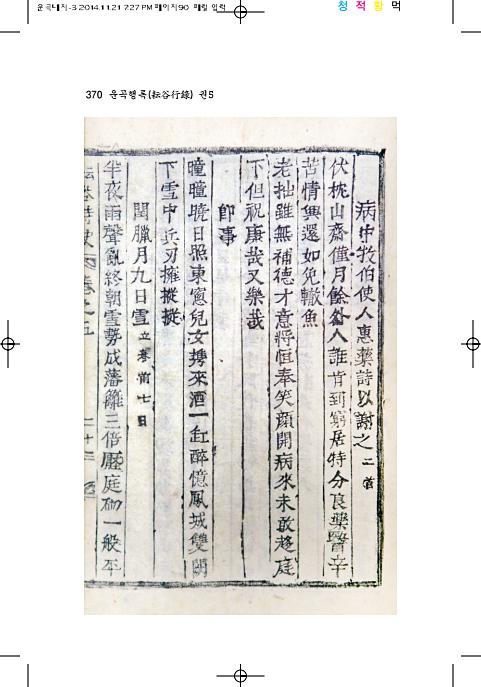 2014.11.21 7:27 PM 페이지90
청 적 황 먹
370 운곡행록(耘谷行錄) 권5
病中牧伯使人惠藥詩以謝之 二首
伏枕山齋僅月餘谷人誰肯到窮居特分良藥醫辛
苦情興還如免轍魚
老拙雖無補德才意將恒奉笑顔開病來未敢趍庭
下但祝康哉又樂哉
即事
曈曈曉日照東窓兒女携來酒一缸醉憶鳳城雙闕
下雪中兵刃擁摐摐
閏臘月九日雪 立春前七日
半夜雨聲亂終朝雪勢成藩籬三倍壓庭砌一般平
卷之五 二十三